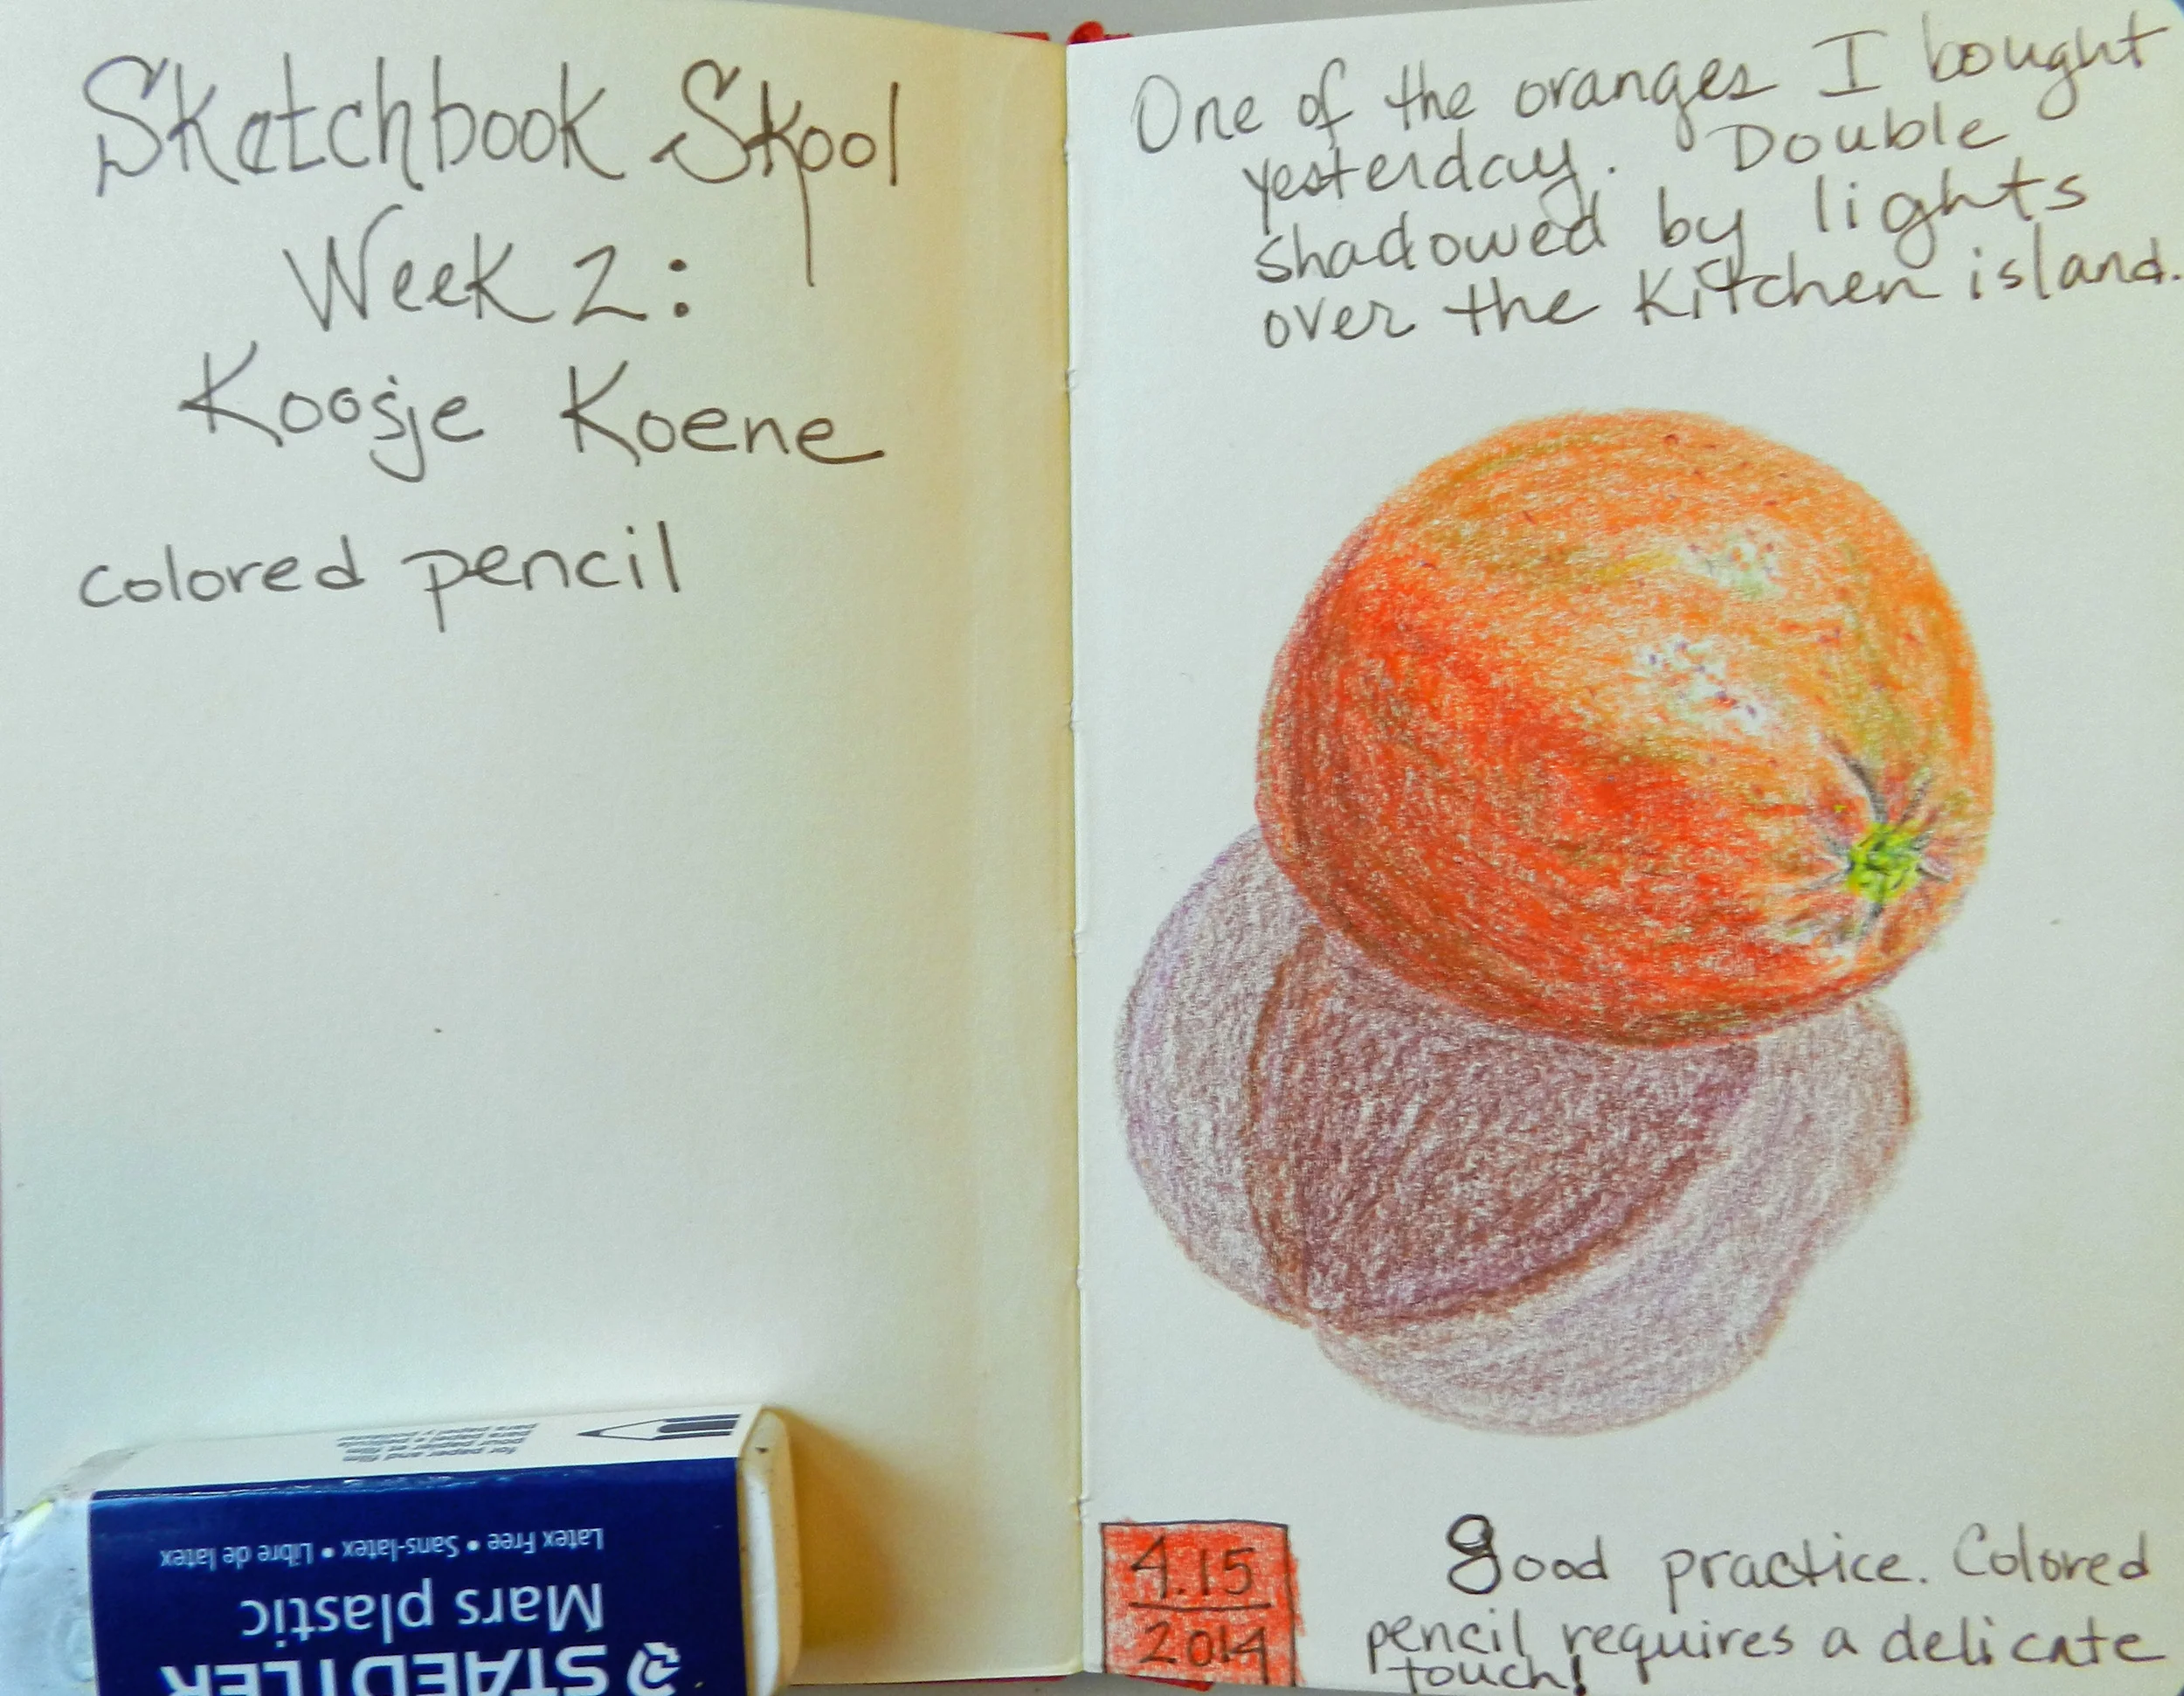 Sketchbook Skool
Week 2:
Koosje Koene
colored pencil
One of the oranges I bought
yesterday. Double
shadowed by lights
over the kitchen island.
4.15
2014
good practice. Colored
pencil requires a delicate
touch!
STAEDTLER
Mars plastic
Latex Free • Sans-latex • Libre de latex
for paper and film